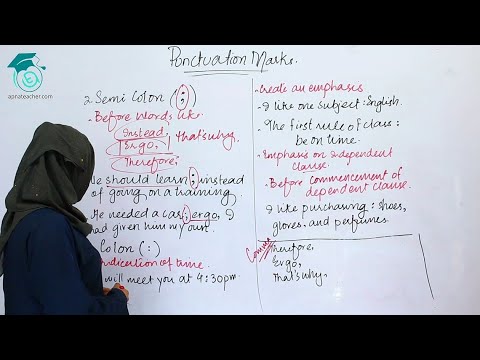 apnateacher.com
Punctuation Marks.
2. Semi Colon (;)
- Before words like:
Instead,
Ergo, that's why
Therefore,
We should learn ; instead
of going on a training.
He needed a car; ergo, I
had given him my own.
Colon (:)
Indication of time.
will meet you at 4:30pm.
- Create an emphasis
- I like one subject : English.
- The first rule of class :
be on time.
- Emphasis on Independent
clause.
- Before commencement of
dependent clause.
- I like purchasing : shoes,
gloves, and perfumes.
Comma
Therefore,
Ergo,
That's why,